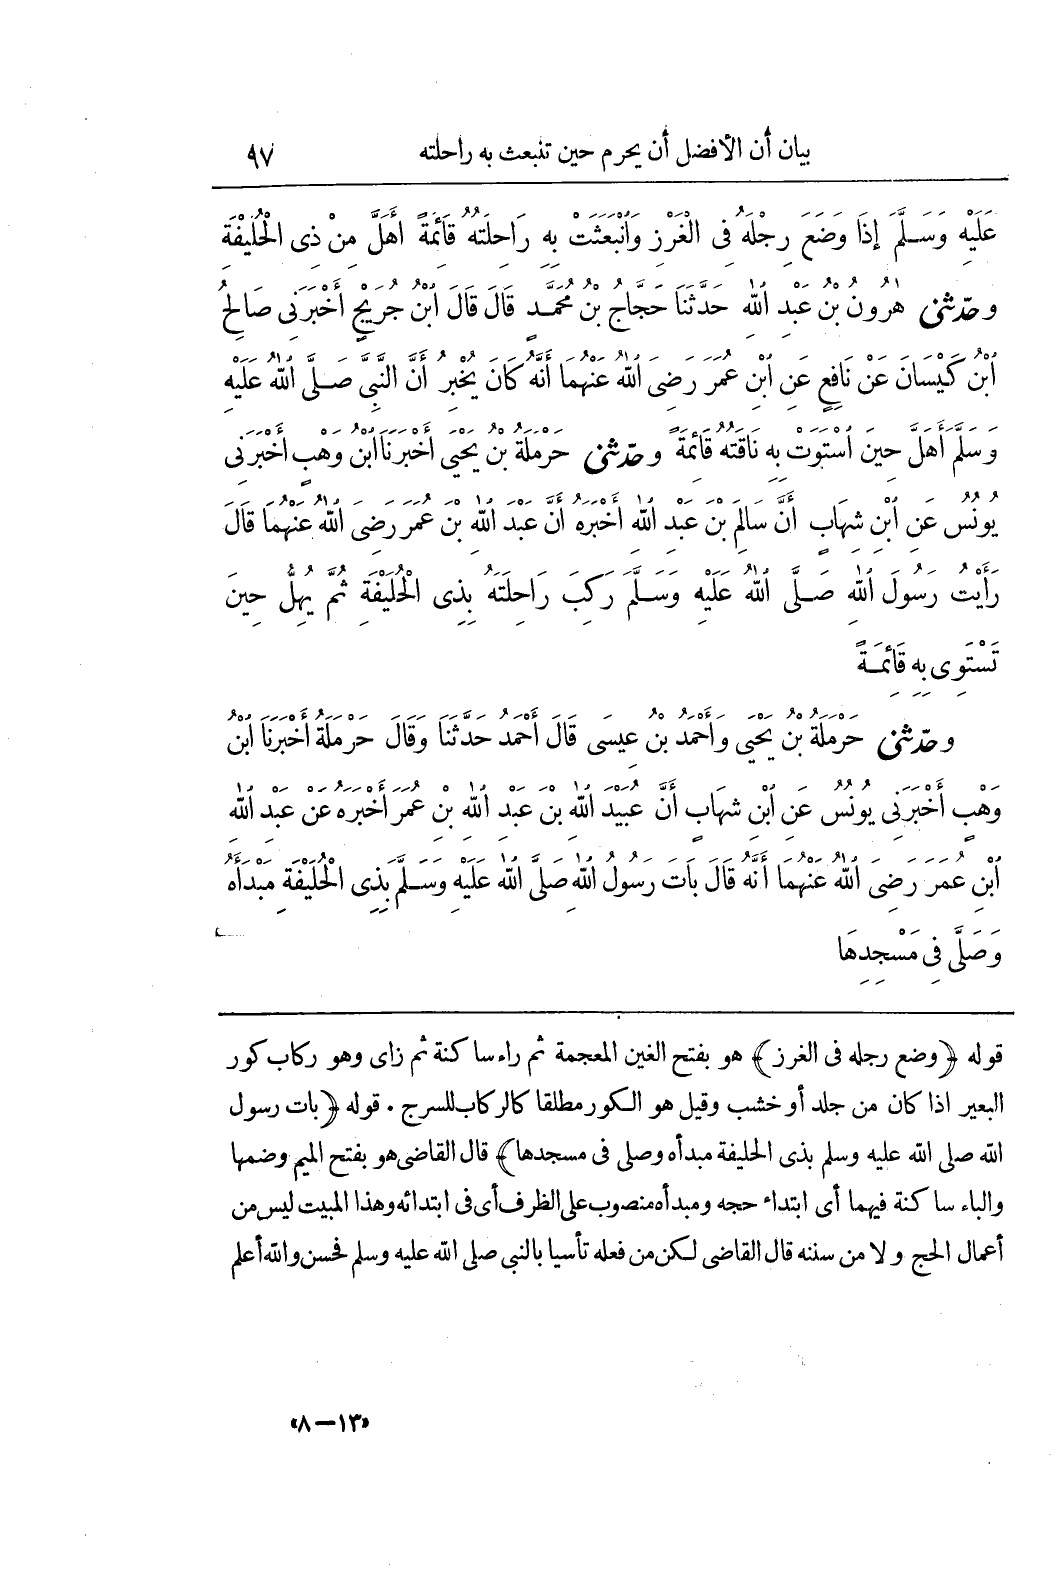 بيان أن الأفضل أن يحرم حين تنبعث به راحلته ٩٧
عَلَيْهِ وَسَلَّمَ إِذَا وَضَعَ رِجْلَهُ فِى الْغَرْزِ وَانْبَعَثَتْ بِهِ رَاحِلَتُهُ قَائِمَةً أَهَلَّ مِنْ ذِى الْحُلَيْفَةِ
وحدّثنى هٰرُونُ بْنُ عَبْدِ اللهِ حَدَّثَنَا حَجَّاجُ بْنُ مُحَمَّدٍ قَالَ قَالَ ابْنُ جُرَيْجٍ أَخْبَرَنِى صَالِحُ
ابْنُ كَيْسَانَ عَنْ نَافِعٍ عَنِ ابْنِ عُمَرَ رَضِىَ اللهُ عَنْهُمَا أَنَّهُ كَانَ يُخْبِرُ أَنَّ النَّبِىَّ صَلَّى اللهُ عَلَيْهِ
وَسَلَّمَ أَهَلَّ حِينَ اسْتَوَتْ بِهِ نَاقَتُهُ قَائِمَةً وحدّثنى حَرْمَلَةُ بْنُ يَحْيَى أَخْبَرَنَا ابْنُ وَهْبٍ أَخْبَرَنِى
يُونُسُ عَنِ ابْنِ شِهَابٍ أَنَّ سَالِمَ بْنَ عَبْدِ اللهِ أَخْبَرَهُ أَنَّ عَبْدَ اللهِ بْنَ عُمَرَ رَضِىَ اللهُ عَنْهُمَا قَالَ
رَأَيْتُ رَسُولَ اللهِ صَلَّى اللهُ عَلَيْهِ وَسَلَّمَ رَكِبَ رَاحِلَتَهُ بِذِى الْحُلَيْفَةِ ثُمَّ يُهِلُّ حِينَ
تَسْتَوِى بِهِ قَائِمَةً
وحدّثنى حَرْمَلَةُ بْنُ يَحْيَى وَأَحْمَدُ بْنُ عِيسَى قَالَ أَحْمَدُ حَدَّثَنَا وَقَالَ حَرْمَلَةُ أَخْبَرَنَا ابْنُ
وَهْبٍ أَخْبَرَنِى يُونُسُ عَنِ ابْنِ شِهَابٍ أَنَّ عُبَيْدَ اللهِ بْنَ عَبْدِ اللهِ بْنِ عُمَرَ أَخْبَرَهُ عَنْ عَبْدِ اللهِ
ابْنِ عُمَرَ رَضِىَ اللهُ عَنْهُمَا أَنَّهُ قَالَ بَاتَ رَسُولُ اللهِ صَلَّى اللهُ عَلَيْهِ وَسَلَّمَ بِذِى الْحُلَيْفَةِ مَبْدَأَهُ
وَصَلَّى فِى مَسْجِدِهَا
قوله ﴿وضع رجله فى الغرز﴾ هو بفتح الغين المعجمة ثم راء ساكنة ثم زاى وهو ركاب كور
البعير اذا كان من جلد أو خشب وقيل هو الكور مطلقا كالركاب للسرج . قوله ﴿بات رسول
الله صلى الله عليه وسلم بذى الحليفة مبدأه وصلى فى مسجدها﴾ قال القاضى هو بفتح الميم وضمها
والباء ساكنة فيهما أى ابتداء حجه ومبدأه منصوب على الظرف أى فى ابتدائه وهذا المبيت ليس من
أعمال الحج ولا من سننه قال القاضى لكن من فعله تأسيا بالنبى صلى الله عليه وسلم فحسن والله أعلم
«١٣ — ٨»